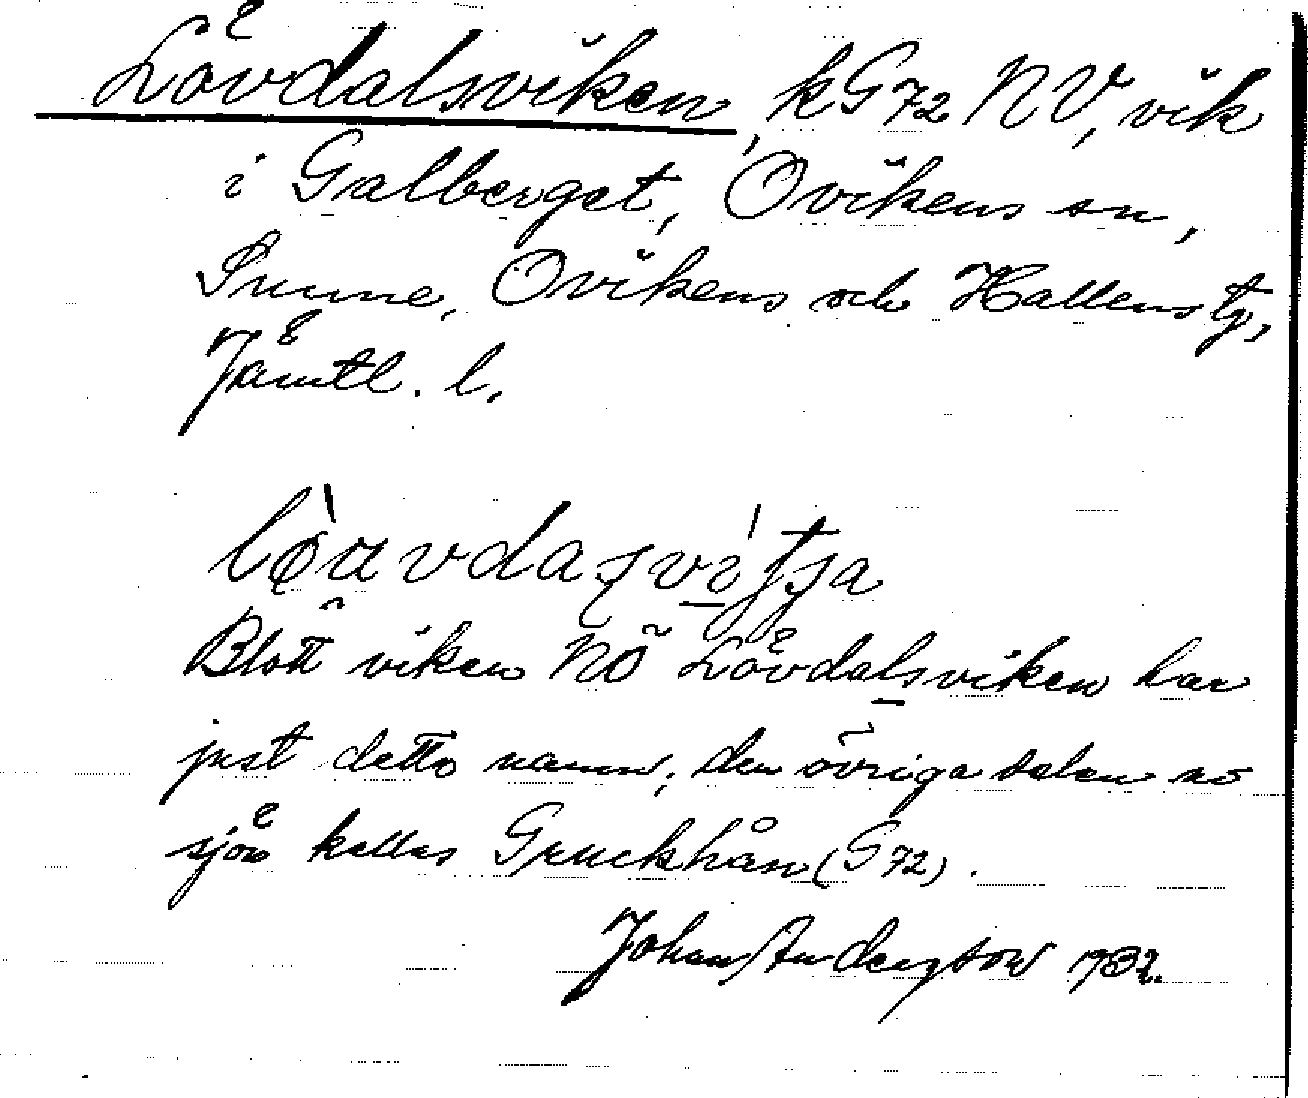 Lövdalsviken, kG72 NV, vik
i Galberget, Ovikens sn,
Sunne, Ovikens och Hallens tg,
Jämtl. l.
Blott viken NO Lövdalsviken har
just detta namn, den övriga delen av
sjön kallas Gruckhån (G72).
Johan Anderson 1932.